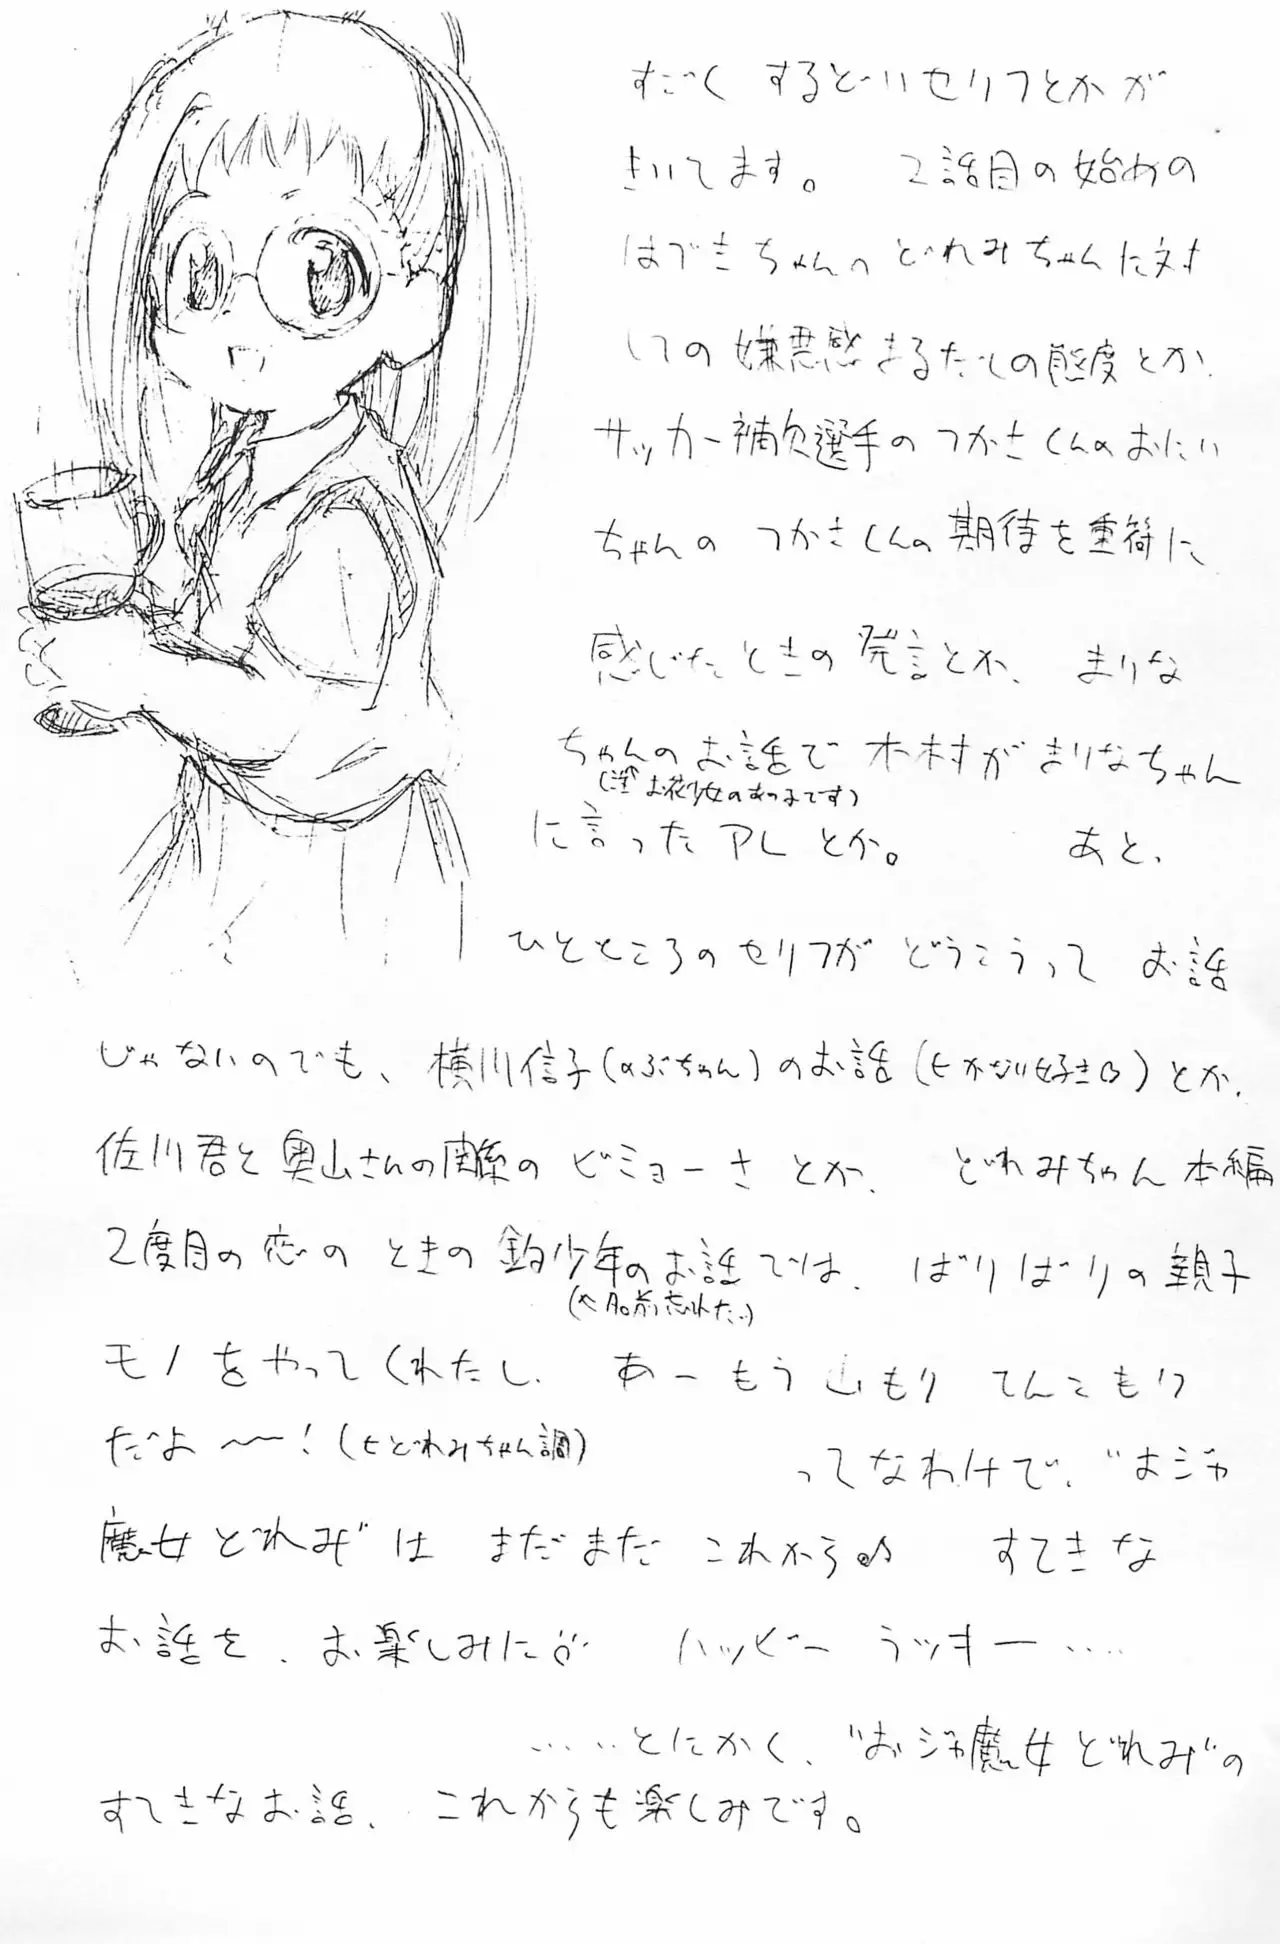 すごく するどいセリフとかが
きいてます。 2話目の始めの
はづきちゃんの どれみちゃんに対
しての嫌悪感まるだしの態度とか、
サッカー補欠選手の つかさくんのおにい
ちゃんの つかさくんの期待を重荷に
感じたときの発言とか、 まりな
ちゃんのお話で 木村がまりなちゃん
(注 お花少女のあの子です)
に言ったアレとか。 あと、
ひとところのセリフが どうこうって お話
じゃないのでも、横川信子(のぶちゃん)のお話(かなり好き)とか、
佐川君と奥山さんの関係の ビミョーさ とか、 どれみちゃん本編
2度目の恋の ときの 釣り少年のお話では、 ばりばりの親子
(名前忘れた…)
モノをやってくれたし、 あーもう山もり てんこもり
だよ〜〜!(どれみちゃん調)
ってなわけで、"おジャ
魔女どれみ"は まだまだ これから♪ すてきな
お話を、お楽しみに ハッピー ラッキー‥‥
‥‥とにかく、"おジャ魔女どれみ"の
すてきなお話、 これからも楽しみです。